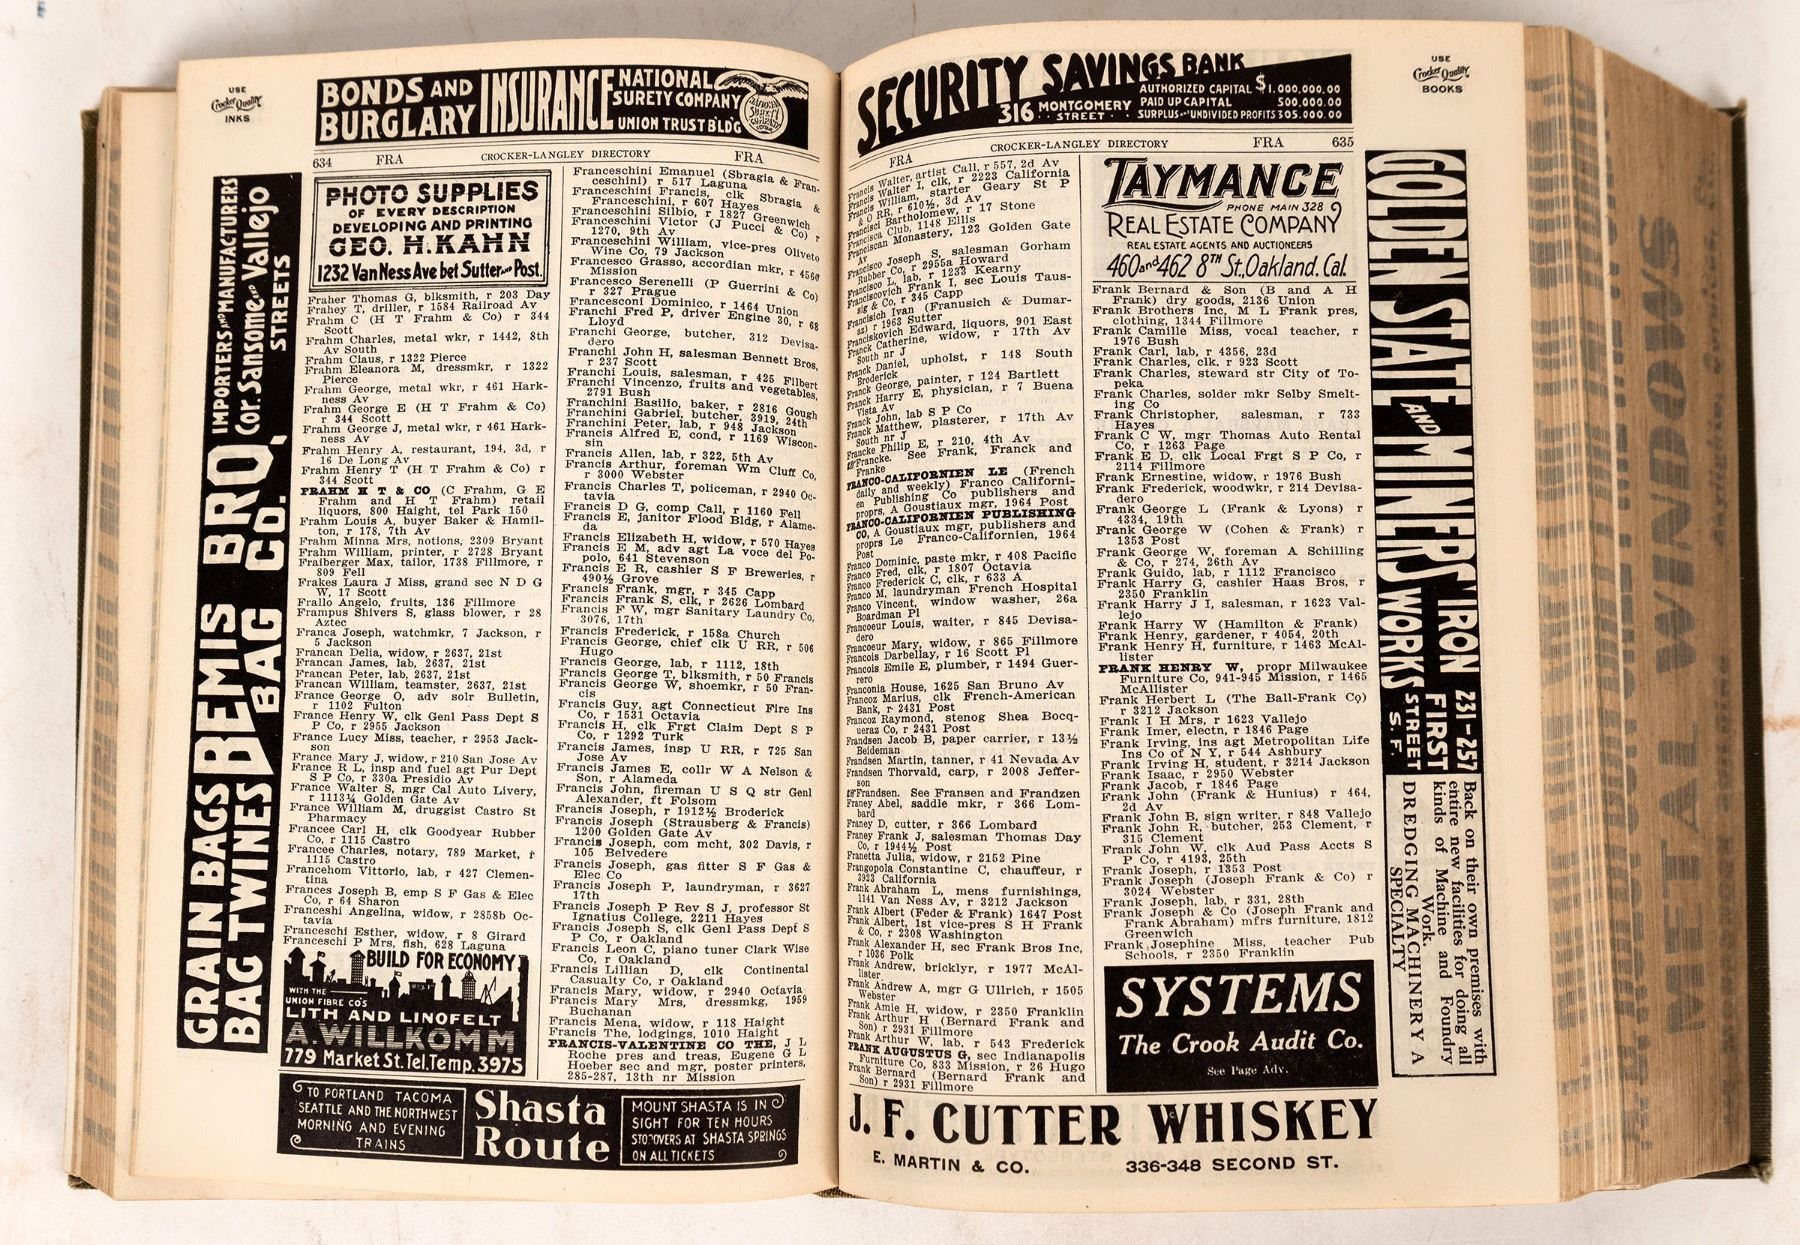 USE
Crocker Quality
INKS
BONDS AND
BURGLARY
INSURANCE
NATIONAL
SURETY COMPANY
UNION TRUST B'LD'G
634 FRA CROCKER-LANGLEY DIRECTORY FRA
GRAIN BAGS
BAG TWINES
BEMIS BRO.
BAG CO.
IMPORTERS AND MANUFACTURERS
Cor. Sansome and Vallejo
STREETS
PHOTO SUPPLIES
OF EVERY DESCRIPTION
DEVELOPING AND PRINTING
GEO. H. KAHN
1232 Van Ness Ave bet Sutter and Post.
Fraher Thomas G, blksmith, r 203 Day
Frahey T, driller, r 1584 Railroad Av
Frahm C (H T Frahm & Co) r 344
Scott
Frahm Charles, metal wkr, r 1442, 8th
Av South
Frahm Claus, r 1322 Pierce
Frahm Eleanora M, dressmkr, r 1322
Pierce
Frahm George, metal wkr, r 461 Hark-
ness Av
Frahm George E (H T Frahm & Co)
r 344 Scott
Frahm George J, metal wkr, r 461 Hark-
ness Av
Frahm Henry A, restaurant, 194, 3d, r
16 De Long Av
Frahm Henry T (H T Frahm & Co) r
344 Scott
FRAHM H T & CO (C Frahm, G E
Frahm and H T Frahm) retail
liquors, 800 Haight, tel Park 150
Frahm Louis A, buyer Baker & Hamil-
ton, r 178, 7th Av
Frahm Minna Mrs, notions, 2309 Bryant
Frahm William, printer, r 2728 Bryant
Fraiberger Max, tailor, 1738 Fillmore, r
809 Fell
Frakes Laura J Miss, grand sec N D G
W, 17 Scott
Frallo Angelo, fruits, 136 Fillmore
Frampus Shivers S, glass blower, r 28
Aztec
Franca Joseph, watchmkr, 7 Jackson, r
5 Jackson
Francan Delia, widow, r 2637, 21st
Francan James, lab, 2637, 21st
Francan Peter, lab, 2637, 21st
Francan William, teamster, 2637, 21st
France George O, adv solr Bulletin,
r 1102 Fulton
France Henry W, clk Genl Pass Dept S
P Co, r 2955 Jackson
France Lucy Miss, teacher, r 2953 Jack-
son
France Mary J, widow, r 210 San Jose Av
France R L, insp and fuel agt Pur Dept
S P Co, r 330a Presidio Av
France Walter S, mgr Cal Auto Livery,
r 1113¼ Golden Gate Av
France William M, druggist Castro St
Pharmacy
Francee Carl H, clk Goodyear Rubber
Co, r 1115 Castro
Francee Charles, notary, 789 Market, r
1115 Castro
Francehom Vittorio, lab, r 427 Clemen-
tina
Frances Joseph B, emp S F Gas & Elec
Co, r 64 Sharon
Franceshi Angelina, widow, r 2858b Oc-
tavia
Franceschi Esther, widow, r 8 Girard
Franceschi P Mrs, fish, 628 Laguna
BUILD FOR ECONOMY
WITH THE
UNION FIBRE CO'S
LITH AND LINOFELT
A. WILLKOMM
779 Market St. Tel. Temp. 3975
Franceschini Emanuel (Sbragia & Fran-
ceschini) r 517 Laguna
Franceschini Francis, clk Sbragia &
Franceschini, r 607 Hayes
Franceschini Silbio, r 1827 Greenwich
Franceschini Victor (J Pucci & Co) r
1270, 9th Av
Franceschini William, vice-pres Oliveto
Wine Co, 79 Jackson
Francesco Grasso, accordian mkr, r 456@
Mission
Francesco Serenelli (P Guerrini & Co)
r 327 Prague
Francesconi Dominico, r 1464 Union
Franchi Fred P, driver Engine 30, r 68
Lloyd
Franchi George, butcher, 312 Devisa-
dero
Franchi John H, salesman Bennett Bros,
r 237 Scott
Franchi Louis, salesman, r 425 Filbert
Franchi Vincenzo, fruits and vegetables,
2791 Bush
Franchini Basilio, baker, r 2816 Gough
Franchini Gabriel, butcher, 3919, 24th
Franchini Peter, lab, r 948 Jackson
Francis Alfred E, cond, r 1169 Wiscon-
sin
Francis Allen, lab, r 322, 5th Av
Francis Arthur, foreman Wm Cluff Co,
r 3000 Webster
Francis Charles T, policeman, r 2940 Oc-
tavia
Francis D G, comp Call, r 1160 Fell
Francis E, janitor Flood Bldg, r Alame-
da
Francis Elizabeth H, widow, r 570 Hayes
Francis E M, adv agt La voce del Po-
polo, 641 Stevenson
Francis E R, cashier S F Breweries, r
490½ Grove
Francis Frank, mgr, r 345 Capp
Francis Frank S, clk, r 2626 Lombard
Francis F W, mgr Sanitary Laundry Co,
3076, 17th
Francis Frederick, r 158a Church
Francis George, chief clk U RR, r 506
Hugo
Francis George, lab, r 1112, 18th
Francis George T, blksmith, r 50 Francis
Francis George W, shoemkr, r 50 Fran-
cis
Francis Guy, agt Connecticut Fire Ins
Co, r 1531 Octavia
Francis H, clk Frgt Claim Dept S P
Co, r 1292 Turk
Francis James, insp U RR, r 725 San
Jose Av
Francis James E, collr W A Nelson &
Son, r Alameda
Francis John, fireman U S Q str Genl
Alexander, ft Folsom
Francis Joseph, r 1912½ Broderick
Francis Joseph (Strausberg & Francis)
1200 Golden Gate Av
Francis Joseph, com mcht, 302 Davis, r
105 Belvedere
Francis Joseph, gas fitter S F Gas &
Elec Co
Francis Joseph P, laundryman, r 3627
17th
Francis Joseph P Rev S J, professor St
Ignatius College, 2211 Hayes
Francis Joseph S, clk Genl Pass Dept S
P Co, r Oakland
Francis Leon C, piano tuner Clark Wise
Co, r Oakland
Francis Lillian D, clk Continental
Casualty Co, r Oakland
Francis Mary, widow, r 2940 Octavia
Francis Mary Mrs, dressmkg, 1959
Buchanan
Francis Mena, widow, r 118 Haight
Francis The, lodgings, 1010 Haight
FRANCIS-VALENTINE CO THE, J L
Roche pres and treas, Eugene G L
Hoeber sec and mgr, poster printers,
285-287, 13th nr Mission
TO PORTLAND TACOMA
SEATTLE AND THE NORTHWEST
MORNING AND EVENING
TRAINS
Shasta
Route
MOUNT SHASTA IS IN
SIGHT FOR TEN HOURS
STOPOVERS AT SHASTA SPRINGS
ON ALL TICKETS
SECURITY SAVINGS BANK
316 MONTGOMERY
STREET
AUTHORIZED CAPITAL $1,000,000.00
PAID UP CAPITAL 500,000.00
SURPLUS AND UNDIVIDED PROFITS 305,000.00
USE
Crocker Quality
BOOKS
FRA CROCKER-LANGLEY DIRECTORY FRA 635
Francis Walter, artist Call, r 557, 2d Av
Francis Walter I, clk, r 2223 California
Francis William, starter Geary St P
& O RR, r 610½, 3d Av
Francisci Bartholomew, r 17 Stone
Francisca Club, 1148 Ellis
Franciscan Monastery, 123 Golden Gate
Av
Francisco Joseph S, salesman Gorham
Rubber Co, r 2955a Howard
Francisco L, lab, r 1233 Kearny
Franciscovich Frank I, sec Louis Taus-
sig & Co, r 345 Capp
Francisich Ivan (Franusich & Dumar-
az) r 1963 Sutter
Franciskovich Edward, liquors, 901 East
Franck Catherine, widow, r 17th Av
South nr J
Franck Daniel, upholst, r 148 South
Broderick
Franck George, painter, r 124 Bartlett
Franck Harry E, physician, r 7 Buena
Vista Av
Franck John, lab S P Co
Franck Matthew, plasterer, r 17th Av
South nr J
Francke Philip E, r 210, 4th Av
Francke. See Frank, Franck and
Franke
FRANCO-CALIFORNIEN LE (French
daily and weekly) Franco Californi-
en Publishing Co publishers and
proprs, A Goustiaux mgr, 1964 Post
FRANCO-CALIFORNIEN PUBLISHING
CO, A Goustiaux mgr, publishers and
proprs Le Franco-Californien, 1964
Post
Franco Dominic, paste mkr, r 408 Pacific
Franco Fred, clk, r 1807 Octavia
Franco Frederick C, clk, r 633 A
Franco M, laundryman French Hospital
Franco Vincent, window washer, 26a
Boardman Pl
Francoeur Louis, waiter, r 845 Devisa-
dero
Francoeur Mary, widow, r 865 Fillmore
Francois Darbellay, r 16 Scott Pl
Francois Emile E, plumber, r 1494 Guer-
rero
Franconia House, 1625 San Bruno Av
Francoz Marius, clk French-American
Bank, r 2431 Post
Francoz Raymond, stenog Shea Bocq-
ueraz Co, r 2431 Post
Frandsen Jacob B, paper carrier, r 13½
Beideman
Frandsen Martin, tanner, r 41 Nevada Av
Frandsen Thorvald, carp, r 2008 Jeffer-
son
Frandsen. See Fransen and Frandzen
Franey Abel, saddle mkr, r 366 Lom-
bard
Franey D, cutter, r 366 Lombard
Franey Frank J, salesman Thomas Day
Co, r 1944½ Post
Franetta Julia, widow, r 2152 Pine
Frangopola Constantine C, chauffeur, r
3923 California
Frank Abraham L, mens furnishings,
1141 Van Ness Av, r 3212 Jackson
Frank Albert (Feder & Frank) 1647 Post
Frank Albert, 1st vice-pres S H Frank
& Co, r 2308 Washington
Frank Alexander H, sec Frank Bros Inc,
r 1036 Polk
Frank Andrew, bricklyr, r 1977 McAl-
lister
Frank Andrew A, mgr G Ullrich, r 1505
Webster
Frank Amie H, widow, r 2350 Franklin
Frank Arthur H (Bernard Frank and
Son) r 2931 Fillmore
Frank Arthur W, lab, r 543 Frederick
FRANK AUGUSTUS G, sec Indianapolis
Furniture Co, 833 Mission, r 26 Hugo
Frank Bernard (Bernard Frank and
Son) r 2931 Fillmore
TAYMANCE
PHONE MAIN 328
REAL ESTATE COMPANY
REAL ESTATE AGENTS AND AUCTIONEERS
460 and 462 8TH St., Oakland. Cal.
Frank Bernard & Son (B and A H
Frank) dry goods, 2136 Union
Frank Brothers Inc, M L Frank pres,
clothing, 1344 Fillmore
Frank Camille Miss, vocal teacher, r
1976 Bush
Frank Carl, lab, r 4356, 23d
Frank Charles, clk, r 923 Scott
Frank Charles, steward str City of To-
peka
Frank Charles, solder mkr Selby Smelt-
ing Co
Frank Christopher, salesman, r 733
Hayes
Frank C W, mgr Thomas Auto Rental
Co, r 1263 Page
Frank E D, clk Local Frgt S P Co, r
2114 Fillmore
Frank Ernestine, widow, r 1976 Bush
Frank Frederick, woodwkr, r 214 Devisa-
dero
Frank George L (Frank & Lyons) r
4334, 19th
Frank George W (Cohen & Frank) r
1353 Post
Frank George W, foreman A Schilling
& Co, r 274, 26th Av
Frank Guido, lab, r 1112 Francisco
Frank Harry G, cashier Haas Bros, r
2350 Franklin
Frank Harry J I, salesman, r 1623 Val-
lejo
Frank Harry W (Hamilton & Frank)
Frank Henry, gardener, r 4054, 20th
Frank Henry H, furniture, r 1463 McAl-
lister
FRANK HENRY W, propr Milwaukee
Furniture Co, 941-945 Mission, r 1465
McAllister
Frank Herbert L (The Ball-Frank Co)
r 3212 Jackson
Frank I H Mrs, r 1623 Vallejo
Frank Imer, electn, r 1846 Page
Frank Irving, ins agt Metropolitan Life
Ins Co of N Y, r 544 Ashbury
Frank Irving H, student, r 3214 Jackson
Frank Isaac, r 2950 Webster
Frank Jacob, r 1846 Page
Frank John (Frank & Hunius) r 464,
2d Av
Frank John B, sign writer, r 848 Vallejo
Frank John R, butcher, 253 Clement, r
315 Clement
Frank John W, clk Aud Pass Accts S
P Co, r 4193, 25th
Frank Joseph, r 1353 Post
Frank Joseph (Joseph Frank & Co) r
3024 Webster
Frank Joseph, lab, r 331, 28th
Frank Joseph & Co (Joseph Frank and
Frank Abraham) mfrs furniture, 1812
Greenwich
Frank Josephine Miss, teacher Pub
Schools, r 2350 Franklin
SYSTEMS
The Crook Audit Co.
See Page Adv.
GOLDEN STATE AND MINERS IRON WORKS
231-257
FIRST
STREET
S. F.
Back on their own premises with
entire new facilities for doing all
kinds of Machine and Foundry
Work.
DREDGING MACHINERY A
SPECIALTY
J. F. CUTTER WHISKEY
E. MARTIN & CO. 336-348 SECOND ST.
METAL WINDOWS